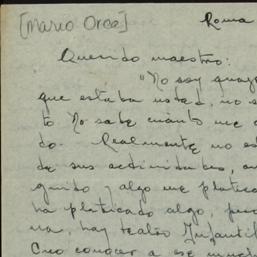 [Mario Orea] Roma
Querido maestro:
"No soy
que estaba usted, no s
to No sabe cuánto me a
do. Realmente no es
de sus actividades, au
guido y algo me platica
ha platicado algo, pero
na, hay teatro Infantil
Creo conocer a ese much